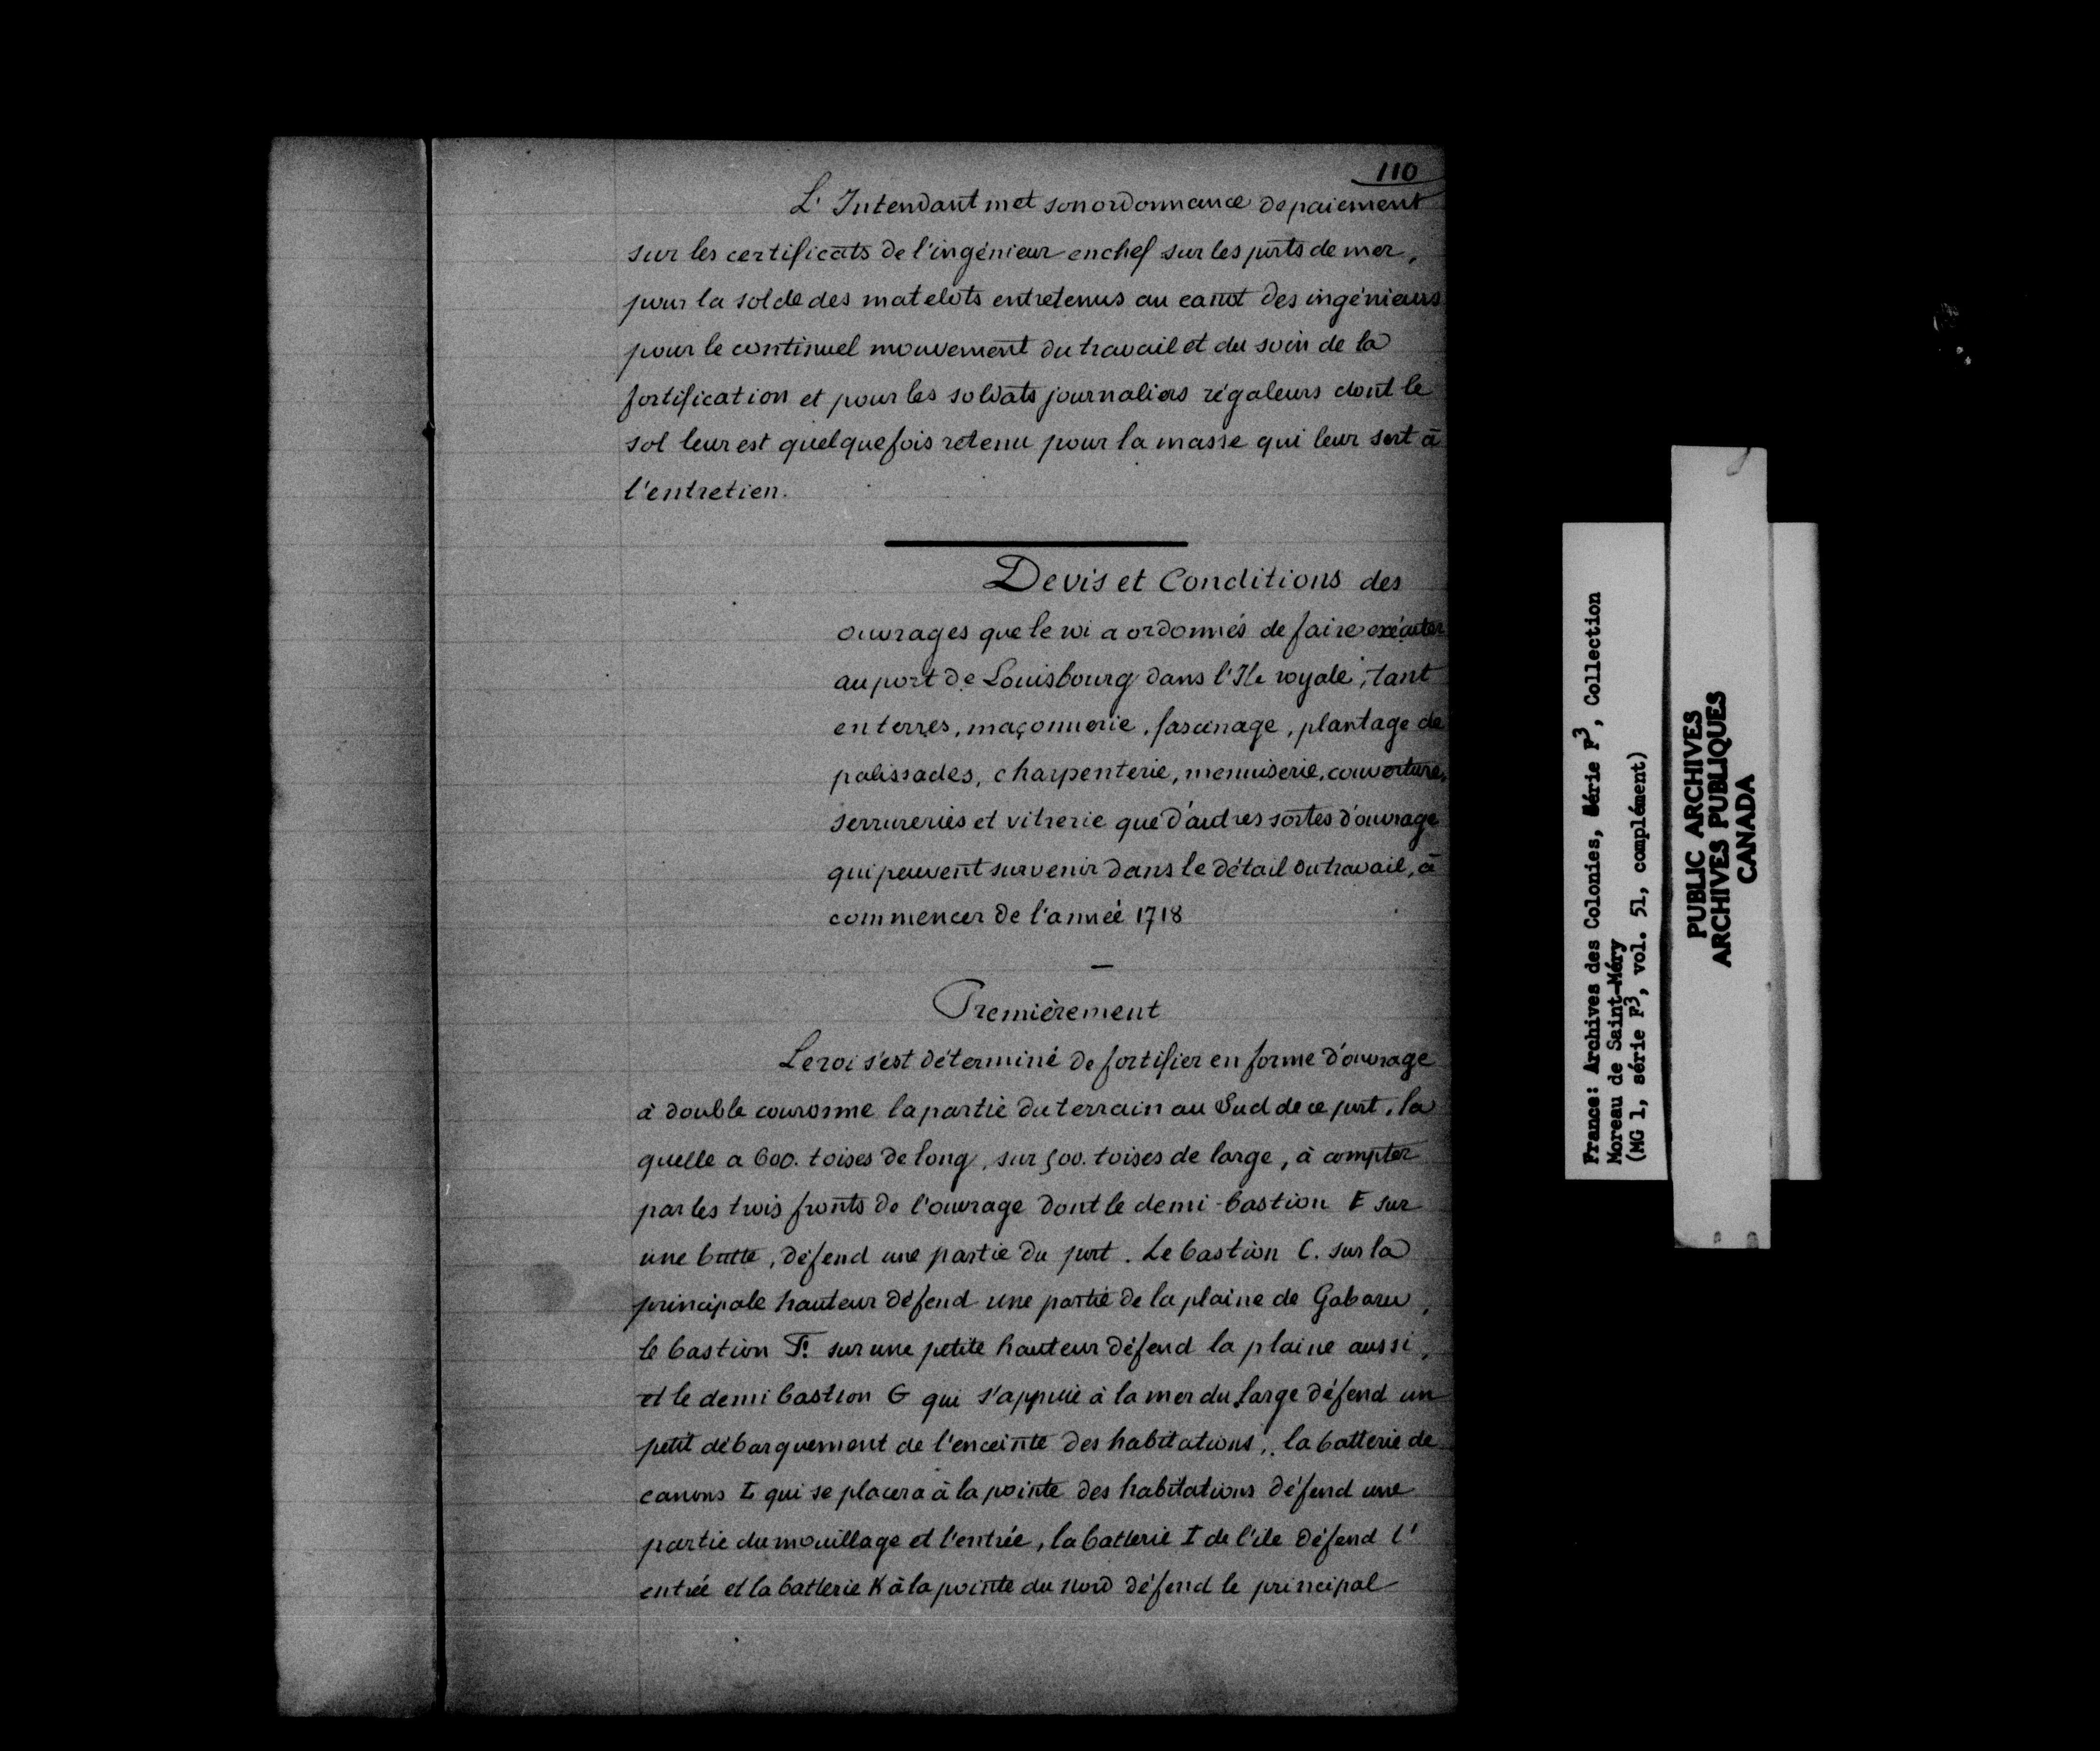 110
L'Intendant met son ordonnance de paiement
sur les certificats de l'ingénieur en chef sur les ports de mer,
pour la solde des matelots entretenus au canot des ingénieurs
pour le continuel mouvement du travail et du soin de la
fortification et pour les soldats journaliers régaleurs dont le
sol leur est quelquefois retenu pour la masse qui leur sert à
l'entretien.
Devis et Conditions des
ouvrages que le roi a ordonnés de faire exécuter
au port de Louisbourg dans l'Ile royale, tant
en terres, maçonnerie, fascinage, plantage de
palissades, charpenterie, menuiserie, couverture,
serrureries et vitrerie que d'autres sortes d'ouvrage
qui peuvent survenir dans le détail du travail, à
commencer de l'année 1718
Premièrement
Le roi s'est déterminé de fortifier en forme d'ouvrage
à double couronne la partie du terrain au Sud de ce port, la
quelle a 600. toises de long, sur 500. toises de large, à compter
par les trois fronts de l'ouvrage dont le demi-bastion E sur
une butte, défend une partie du port. Le bastion C. sur la
principale hauteur défend une partie de la plaine de Gabaru,
le bastion F. sur une petite hauteur défend la plaine aussi,
et le demi bastion G qui s'appuie à la mer du large défend un
petit débarquement de l'enceinte des habitations, la batterie de
canons L qui se placera à la pointe des habitations défend une
partie du mouillage et l'entrée, la batterie I de l'ile défend l'
entrée et la batterie K à la pointe du nord défend le principal
France: Archives des Colonies, Série F3, Collection
Moreau de Saint-Méry
(MG 1, série F3, vol. 51, complément)
PUBLIC ARCHIVES
ARCHIVES PUBLIQUES
CANADA